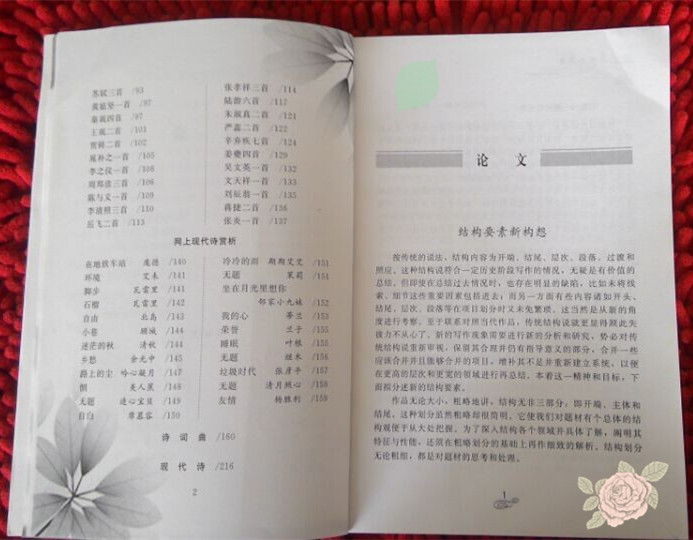 苏轼三首 /93
黄庭坚一首 /97
秦观四首 /97
王观二首 /101
贺铸二首 /104
晁补之一首 /105
李之仪一首 /106
周邦彦三首 /108
陈与义一首 /109
李清照三首 /110
岳飞二首 /113
张孝祥三首 /114
陆游六首 /117
朱淑真二首 /121
严蕊二首 /122
辛弃疾七首 /124
姜夔四首 /129
吴文英一首 /132
文天祥一首 /133
刘辰翁一首 /135
蒋捷二首 /136
张炎一首 /137
网上现代诗赏析
在地铁车站 庞德 /140
环境 艾未 /141
脚步 瓦雷里 /142
石榴 瓦雷里 /142
自由 北岛 /143
小巷 顾城 /144
迷茫的秋 清秋 /144
乡愁 余光中 /145
路上的尘 吟心凝月 /147
恨 美人蕉 /148
无题 连心宝贝 /149
自白 席慕容 /150
泠泠的雨 期期艾艾 /151
无题 茉莉 /151
坐在月光里想你
邻家小九妹 /152
我的心 蒂兰 /153
荣誉 兰子 /155
睡眠 叶栋 /155
无题 /156
垃圾时代 张彦平 /157
无题 清月照心 /158
友情 杨胜利 /159
诗词曲 /160
现代诗 /216
2
论 文
结构要素新构想
按传统的说法，结构内容为开端、结尾、层次、段落、过渡和
照应。这种结构说符合一定历史阶段写作的情况，无疑是有价值的
总结。但即使在总结过去情况时，也存在明显的缺陷，比如未将线
索、细节这些重要因素包括进去；而另一方面有些内容诸如开头、
结尾、层次、段落等在项目划分时又未免繁琐。这当然是从新的角
度进行考察。至于联系对照当代作品，传统结构说就更显得顾此失
彼力不从心了。新的写作现象需要进行新的分析和研究，势必对传
统结构说重新审视，保留其合理并仍有指导意义的部分，合并一些
应该合并并且能够合并的项目，增补其不足并重新建立系统，以便
在更高的层次和更宽的领域进行再总结。本着这一精神和目标，下
面拟分述新的结构要素。
作品无论大小，粗略地讲，结构无非三部分：即开端、主体和
结尾。这种划分虽然粗略却很简明，它使我们对题材有个总体的结
构观便于从大处把握。为了深入结构各个领域并具体了解，阐明其
特征与性能，还须在粗略划分的基础上再作细致的解析。结构划分
无论粗细，都是对题材的思考和处理。
1